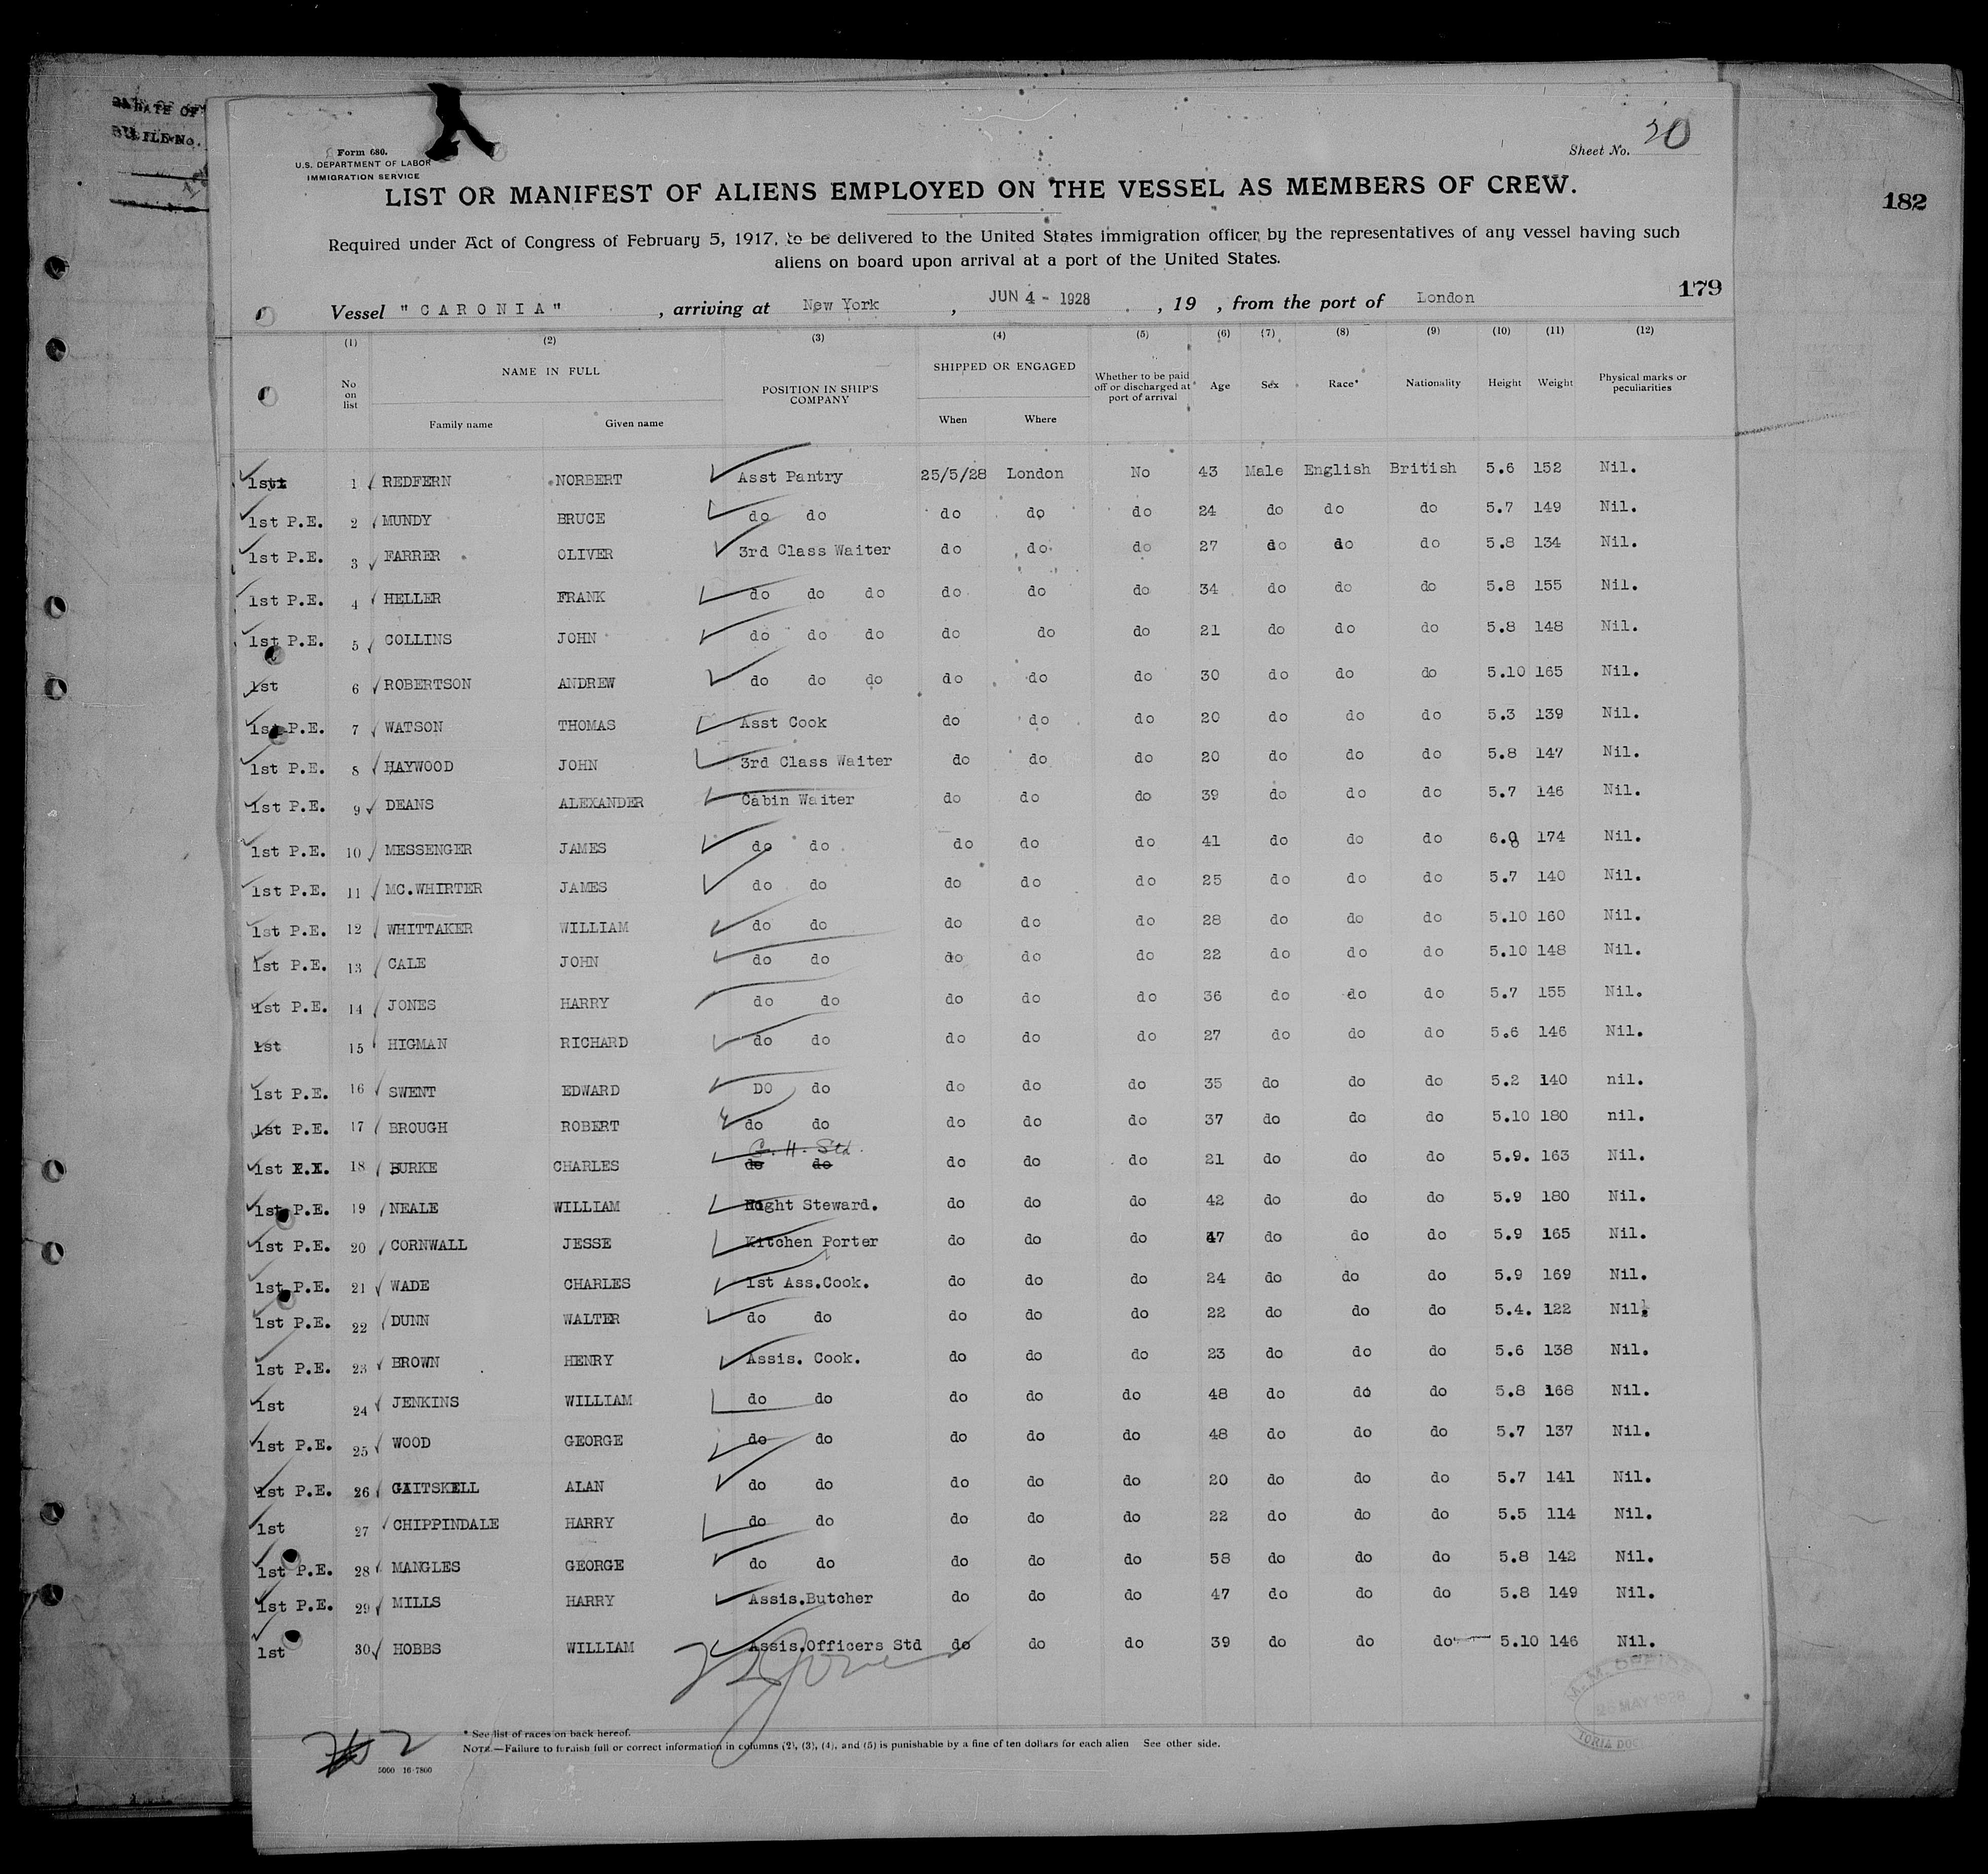 DATE OF
FILE No.
Form 680.
U.S. DEPARTMENT OF LABOR
IMMIGRATION SERVICE
Sheet No. 20
182
LIST OR MANIFEST OF ALIENS EMPLOYED ON THE VESSEL AS MEMBERS OF CREW.
Required under Act of Congress of February 5, 1917, to be delivered to the United States immigration officer by the representatives of any vessel having such
aliens on board upon arrival at a port of the United States.
179
Vessel "CARONIA" , arriving at New York , JUN 4 - 1928 , 19 , from the port of London
(1) (2) (3) (4) (5) (6) (7) (8) (9) (10) (11) (12)
No on list NAME IN FULL Family name Given name POSITION IN SHIP'S COMPANY SHIPPED OR ENGAGED When Where Whether to be paid off or discharged at port of arrival Age Sex Race* Nationality Height Weight Physical marks or peculiarities
1st 1 REDFERN NORBERT Asst Pantry 25/5/28 London No 43 Male English British 5.6 152 Nil.
1st P.E. 2 MUNDY BRUCE do do do do do 24 do do do 5.7 149 Nil.
1st P.E. 3 FARRER OLIVER 3rd Class Waiter do do do 27 do do do 5.8 134 Nil.
1st P.E. 4 HELLER FRANK do do do do do do 34 do do do 5.8 155 Nil.
1st P.E. 5 COLLINS JOHN do do do do do do 21 do do do 5.8 148 Nil.
1st 6 ROBERTSON ANDREW do do do do do do 30 do do do 5.10 165 Nil.
1st P.E. 7 WATSON THOMAS Asst Cook do do do 20 do do do 5.3 139 Nil.
1st P.E. 8 HAYWOOD JOHN 3rd Class Waiter do do do 20 do do do 5.8 147 Nil.
1st P.E. 9 DEANS ALEXANDER Cabin Waiter do do do 39 do do do 5.7 146 Nil.
1st P.E. 10 MESSENGER JAMES do do do do do 41 do do do 6.0 174 Nil.
1st P.E. 11 MC.WHIRTER JAMES do do do do do 25 do do do 5.7 140 Nil.
1st P.E. 12 WHITTAKER WILLIAM do do do do do 28 do do do 5.10 160 Nil.
1st P.E. 13 CALE JOHN do do do do do 22 do do do 5.10 148 Nil.
1st P.E. 14 JONES HARRY do do do do do 36 do do do 5.7 155 Nil.
1st 15 HIGMAN RICHARD do do do do do 27 do do do 5.6 146 Nil.
1st P.E. 16 SWENT EDWARD DO do do do do 35 do do do 5.2 140 nil.
1st P.E. 17 BROUGH ROBERT do do do do do 37 do do do 5.10 180 nil.
G. H. Std.
1st 18 BURKE CHARLES do do do do do 21 do do do 5.9. 163 Nil.
1st P.E. 19 NEALE WILLIAM Night Steward. do do do 42 do do do 5.9 180 Nil.
1st P.E. 20 CORNWALL JESSE Kitchen Porter do do do 47 do do do 5.9 165 Nil.
1st P.E. 21 WADE CHARLES 1st Ass.Cook. do do do 24 do do do 5.9 169 Nil.
1st P.E. 22 DUNN WALTER do do do do do 22 do do do 5.4. 122 Nil.
1st P.E. 23 BROWN HENRY Assis. Cook. do do do 23 do do do 5.6 138 Nil.
1st 24 JENKINS WILLIAM do do do do do 48 do do do 5.8 168 Nil.
1st P.E. 25 WOOD GEORGE do do do do do 48 do do do 5.7 137 Nil.
1st P.E. 26 GAITSKELL ALAN do do do do do 20 do do do 5.7 141 Nil.
1st 27 CHIPPINDALE HARRY do do do do do 22 do do do 5.5 114 Nil.
1st P.E. 28 MANGLES GEORGE do do do do do 58 do do do 5.8 142 Nil.
1st P.E. 29 MILLS HARRY Assis.Butcher do do do 47 do do do 5.8 149 Nil.
1st 30 HOBBS WILLIAM Assis.Officers Std do do do 39 do do do 5.10 146 Nil.
M. M. OFFICE
26 MAY 1928
TORIA DOC
* See list of races on back hereof.
NOTE.—Failure to furnish full or correct information in columns (2), (3), (4), and (5) is punishable by a fine of ten dollars for each alien See other side.
5000 16-7800